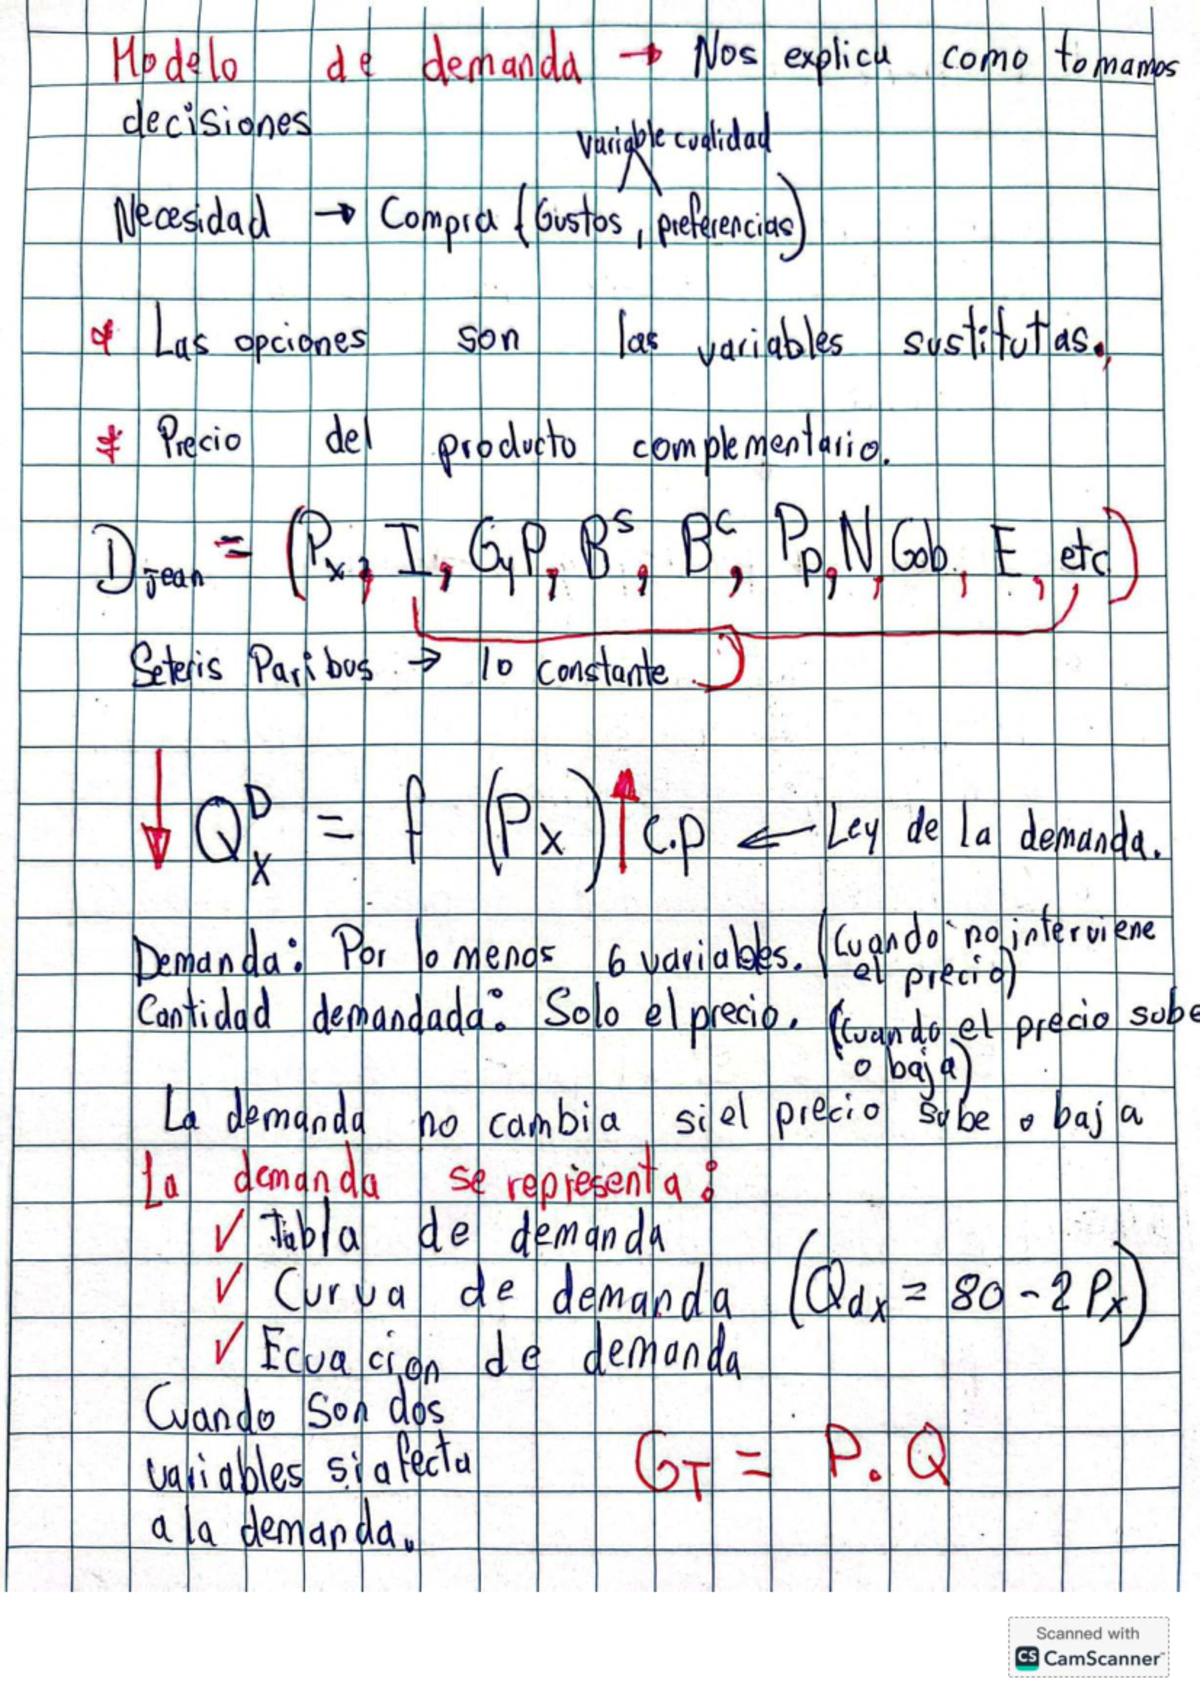 Modelo de demanda → Nos explica como tomamos
decisiones
variable cualidad
Necesidad → Compra (Gustos, preferencias)
* Las opciones son las variables sustitutas.
* Precio del producto complementario.
D jean = (Px, I, GyP, B^s, B^c, Pp, N, Gob, E, etc)
Seteris Paribus → lo constante
↓ Q^D_x = f (Px) ↑ c.p ← Ley de la demanda.
Demanda: Por lo menos 6 variables. (Cuando no interviene
el precio)
Cantidad demandada: Solo el precio. (Cuando el precio sube
o baja)
La demanda no cambia si el precio sube o baja
La demanda se representa:
✓ Tabla de demanda
✓ Curva de demanda (Qdx = 80 - 2Px)
✓ Ecuacion de demanda
Cuando son dos
variables si afecta
a la demanda.
GT = P. Q
Scanned with
CS CamScanner